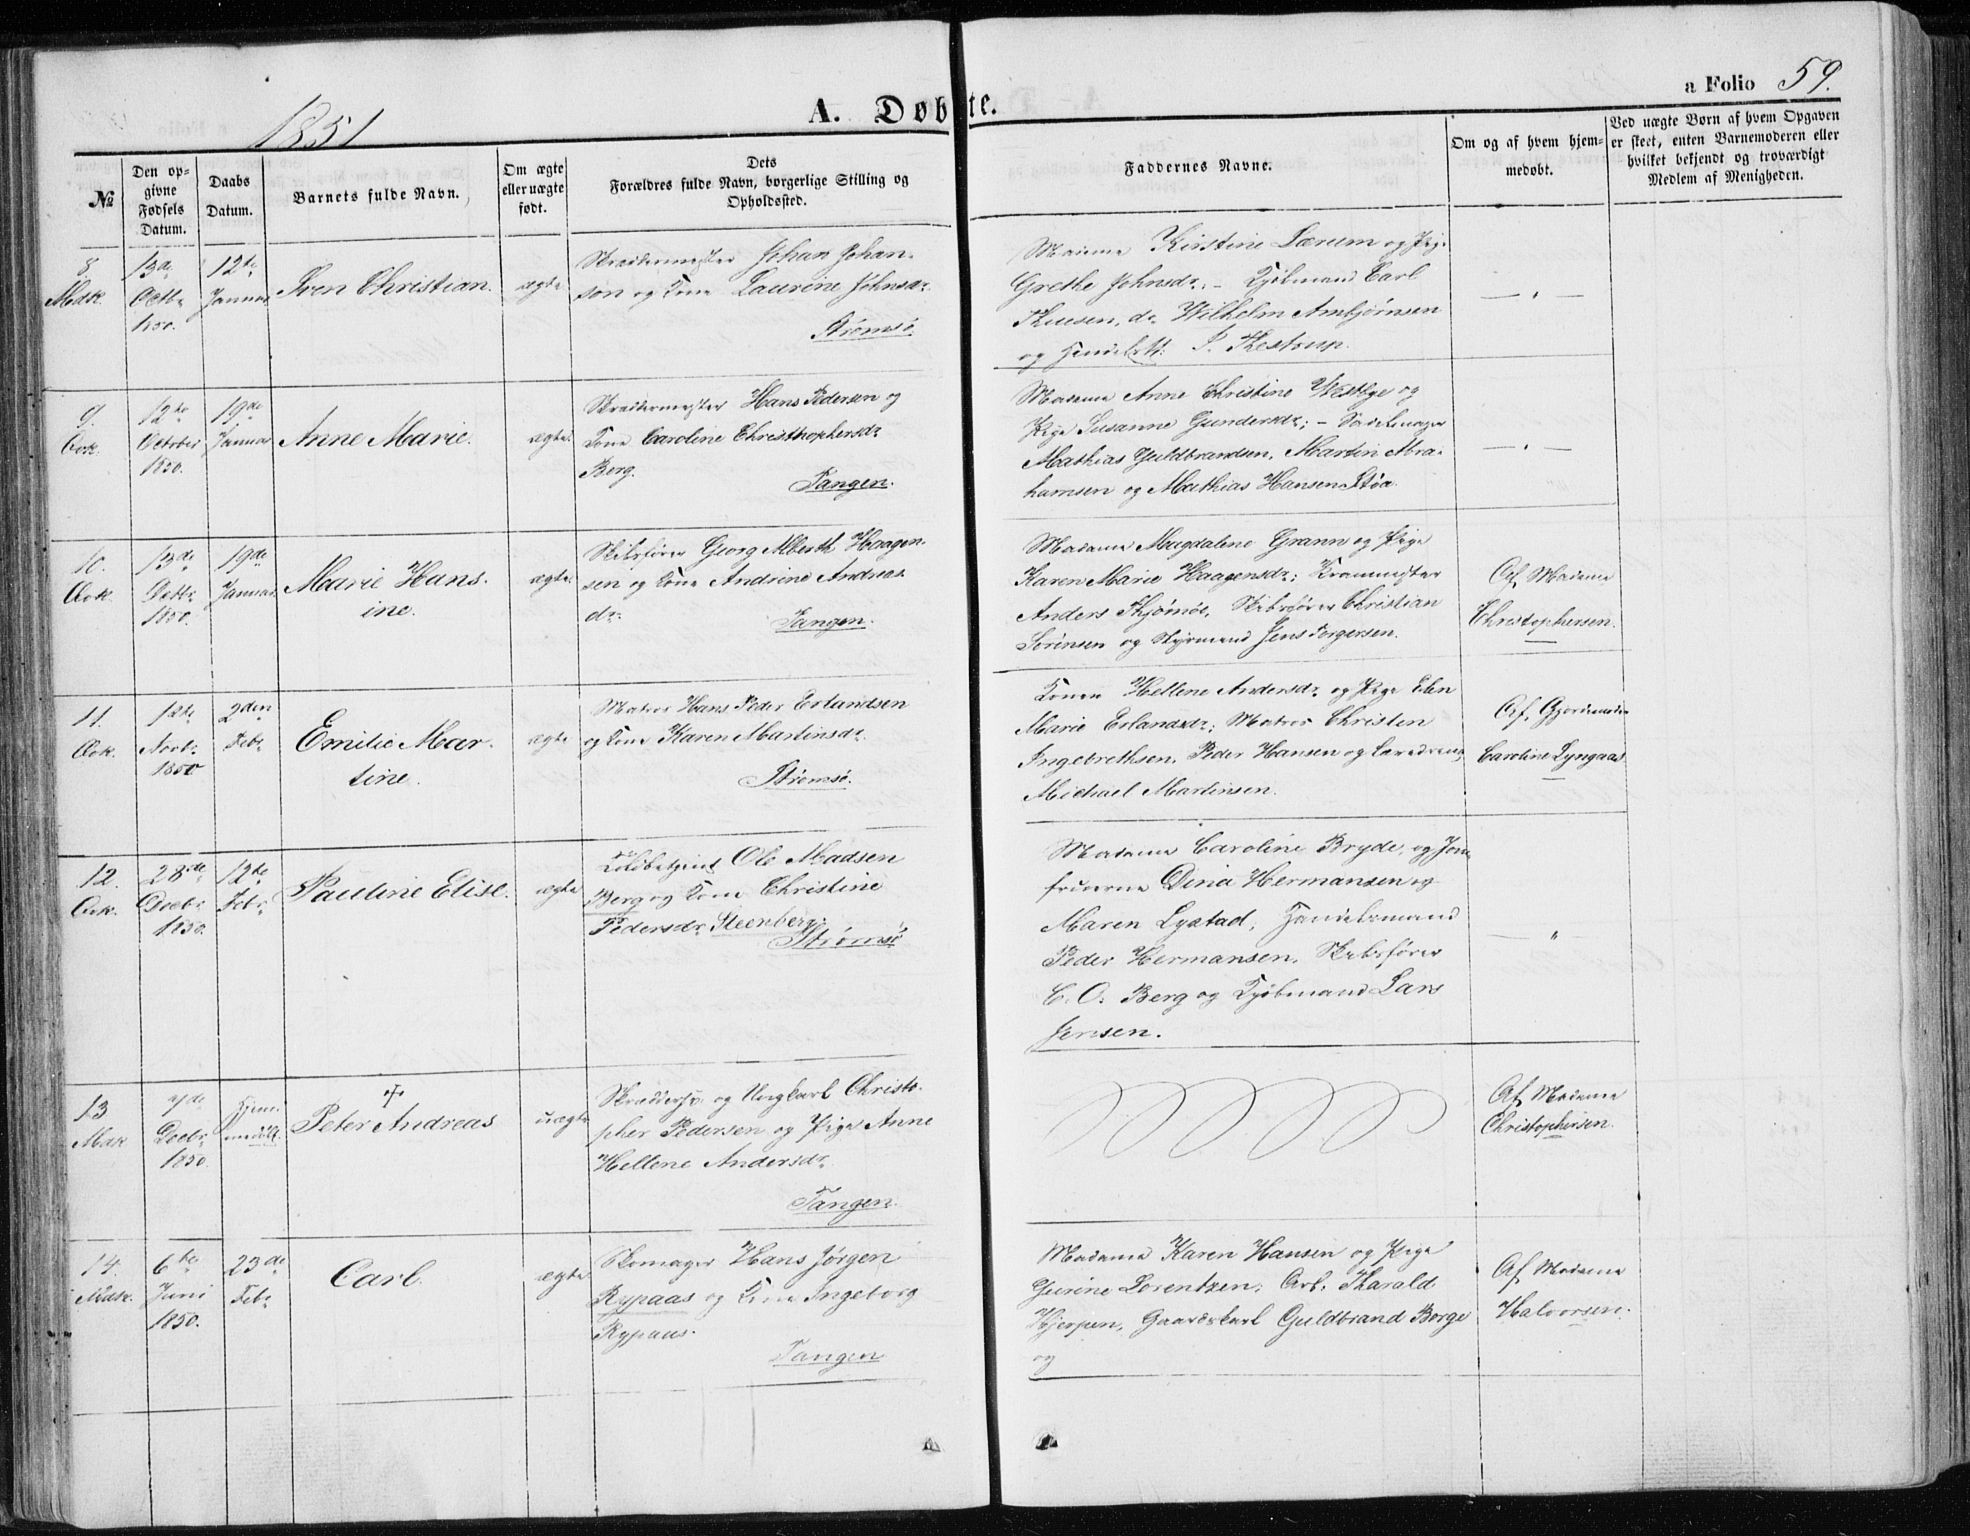 1851
A. Døbte.
a Folio 59.
№
Den op-
givne
Fødsels
Datum.
Daabs
Datum.
Barnets fulde Navn.
Om ægte
eller uægte
født.
Dets
Forældres fulde Navn, borgerlige Stilling og
Opholdssted.
Faddernes Navne.
Om og af hvem hjem-
medøbt.
Ved uægte Børn af hvem Opgaven
er skeet, enten Barnemoderen eller
hvilket bekjendt og troværdigt
Medlem af Menigheden.
8.
Mdk.
13de
Octbr
1850.
12te
Januar
Sven Christian.
ægte
Skredermester Johan Johan-
son og Kone Laurine Johnsdr.
Strømsø.
Madame Kirstine Lærum og Pige
Grethe Johnsdr. – Kjøbmand Carl
Thuesen, do Wilhelm Ambjørnsen
og P. Thestrup.
9.
Qvk.
12te
October
1850.
19de
Januar
Anne Marie.
ægte
Skredermester Hans Pedersen og
Kone Caroline Christhophersdr
Berg.
Tangen.
Madame Anne Christine Westbye og
Pige Susanne Gundersdr; – Sadelmager
Mathias Guldbrandsen, Martin Abra-
hamsen og Mathias Hansen Støa.
10.
Qvk.
13de
Octbr
1850.
19de
Januar
Marie Hans-
ine.
ægte
Skibsfører Georg Alberth Haagen-
sen og Kone Andrine Andreas
dr.
Tangen.
Madame Magdalene Grann og Pige
Karen Marie Haagensdr;
Anders Thjømøe, Skibsfører Christian
Sørensen og Styrmand Jens Torgersen.
Af Madame
Christophersen.
11.
Qvk.
12te
Novbr
1850
2den
Febr
Emilie Mar-
tine.
ægte
Matros Hans Peder Erlandsen
og Kone Karen Martinsdr.
Strømsø.
Konen Hellene Andersdr og Pige Elen
Marie Erlandsdr; Matros Christen
Ingebrethsen, Peder Hansen og Læredreng
Michael Martinsen.
Af Gjordemoder
Caroline Lyngaas
12.
Qvk.
28de
Decbr
1850.
12te
Febr
Pauline Elise.
ægte
Toldbetjent Ole Madsen
Berg og Kone Christine
Pedersdr. Steenberg.
Strømsø
Madame Caroline Bryde, og Jom-
fruerne Dina Hermansen og
Maren Lystad, Handelsmand
Peder Hermansen, Skibsfører
C. O. Berg og Kjøbmand Lars
Jensen.
13
Mdk
7de
Decbr
1850.
Hjem-
medøbt.
Peter Andreas
uægte
og Ungkarl Christo-
pher Pedersen og Pige Anne
Hellene Andersdr.
Tangen.
Af Madame
Christophersen.
14.
Mdk.
6te
Juni
1850.
23de
Febr
Carl.
ægte
Skomager Hans Jørgen
Rypaas og Kone Ingeborg
Rypaas.
Tangen
Madame Karen Hansen og Pige
Gurine Lorentzen; Arb. Tharald
Hjerpen, Gaardskarl Guldbrand Borge
og
Af Madame
Halvorsen.